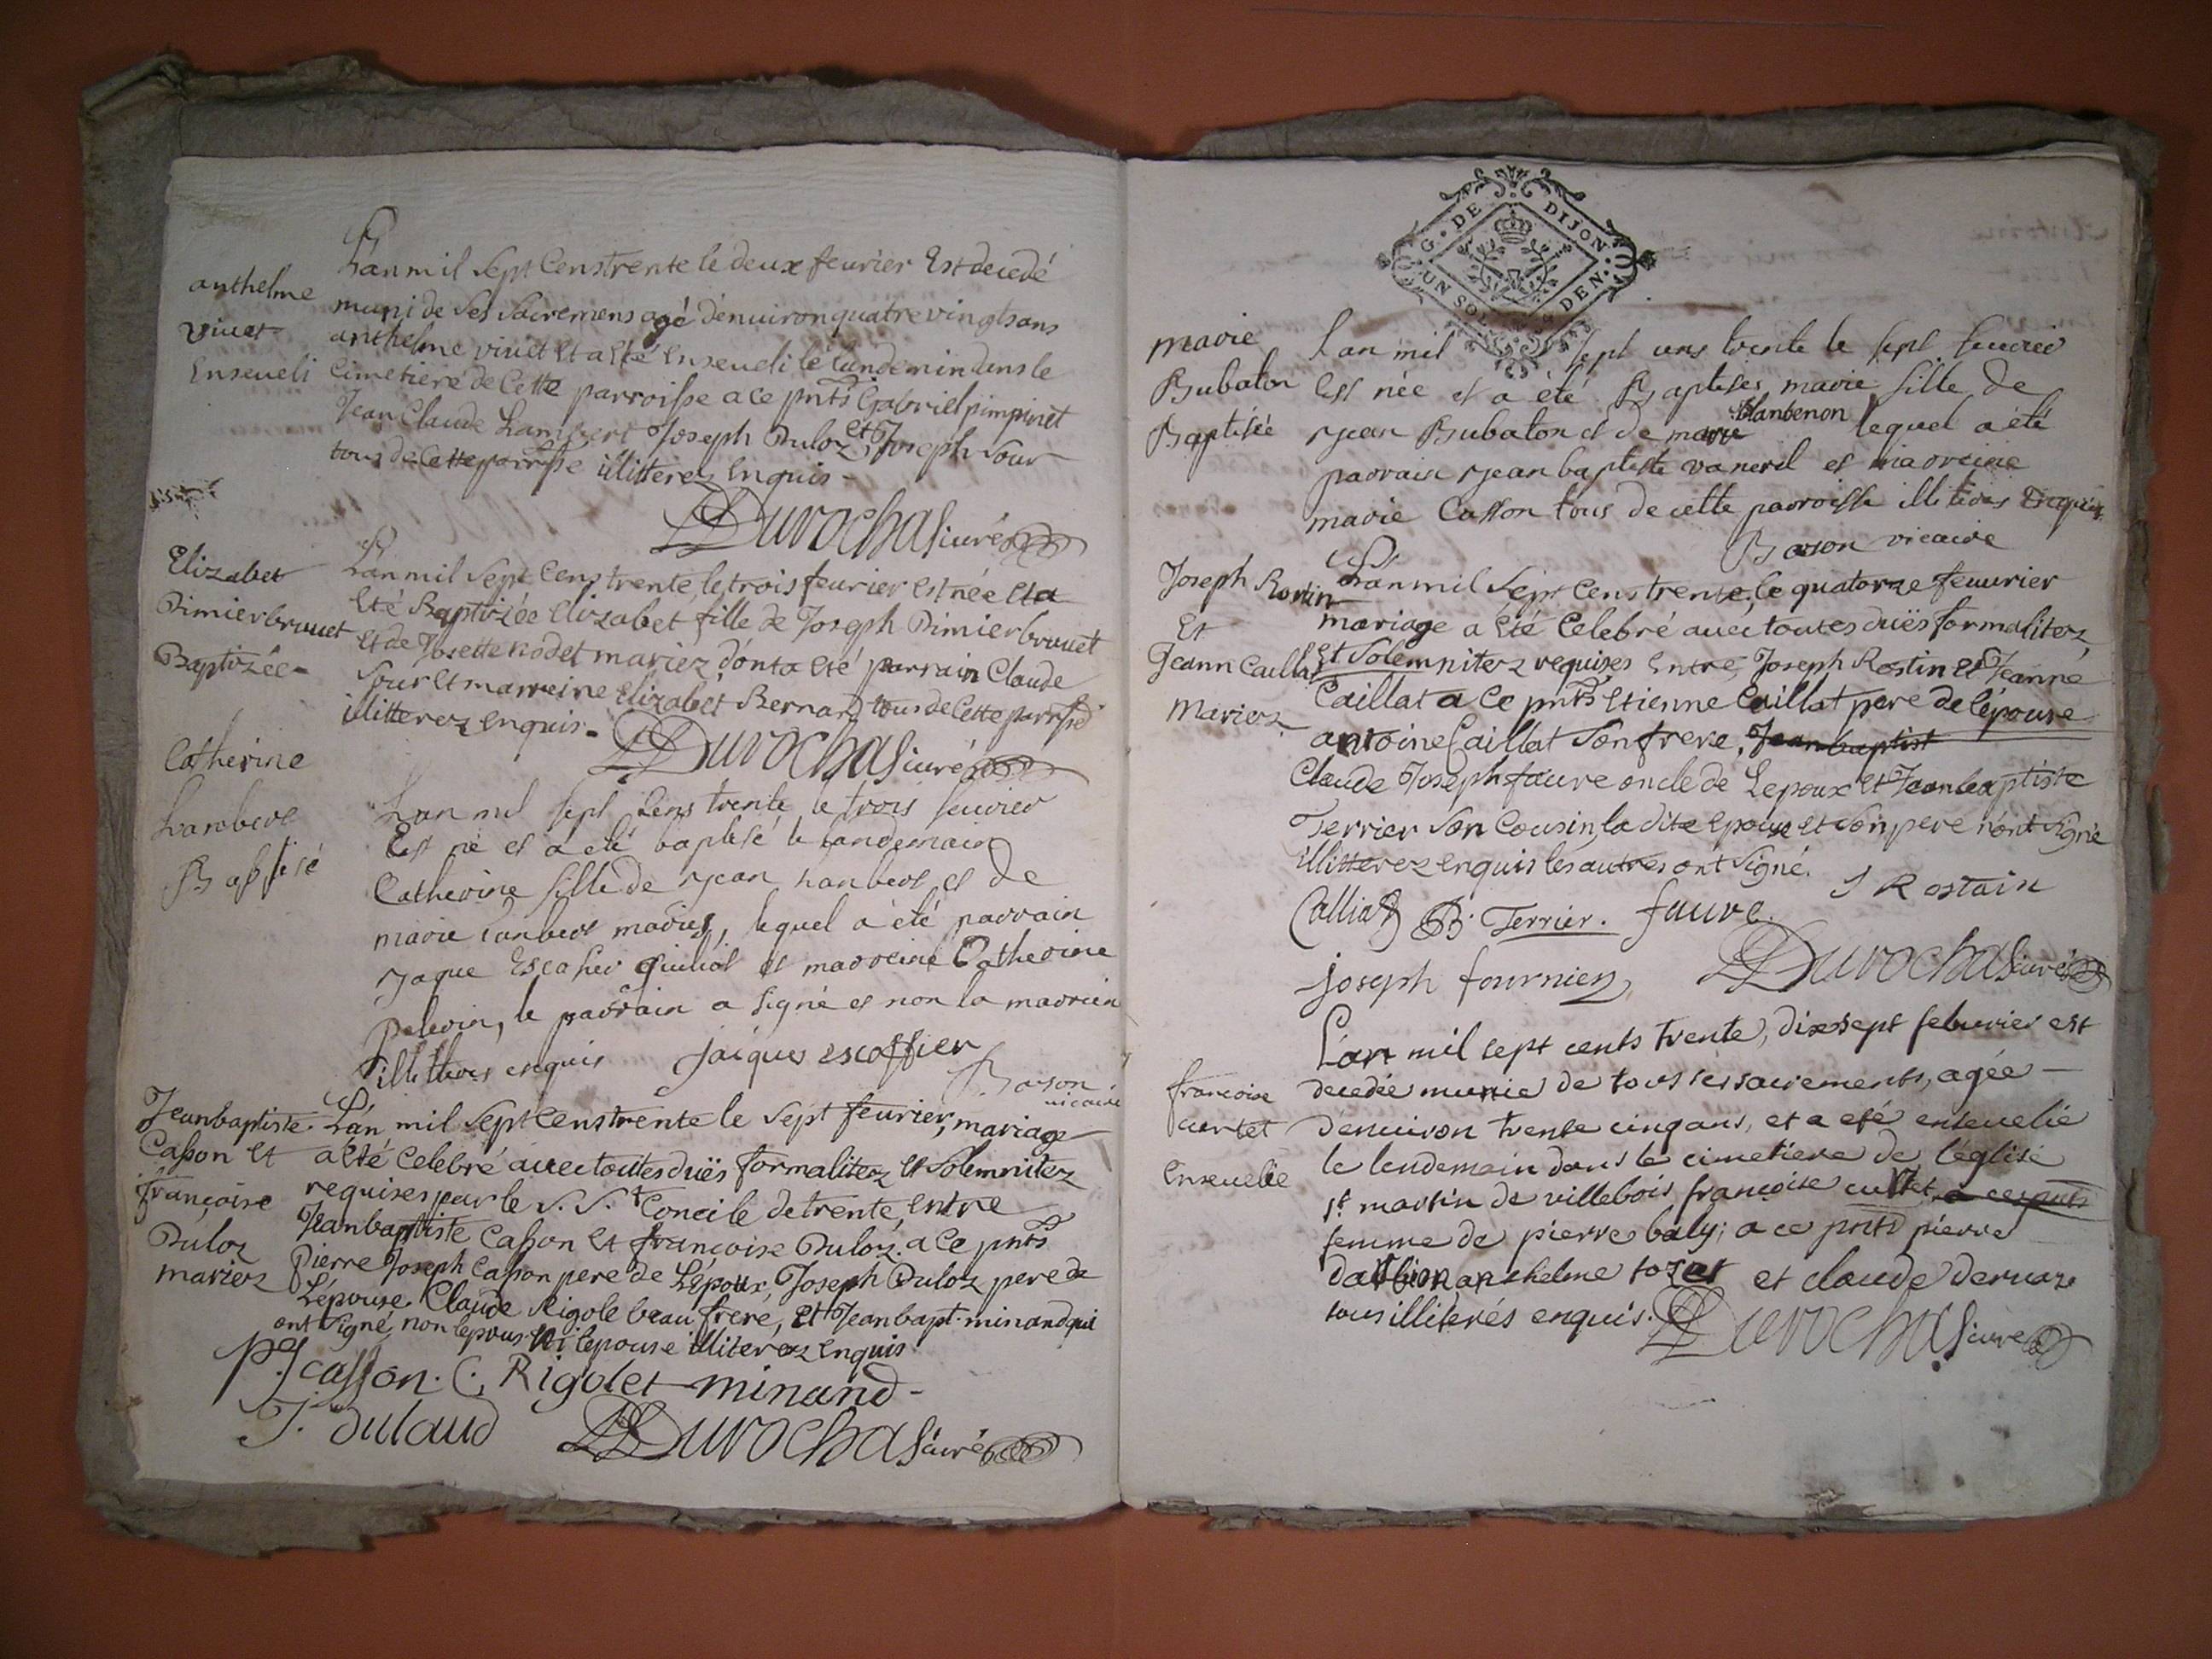 anthelme
vivet
Enseveli
L'an mil Sept Cens trente le deux feurier Est decedé
muni de Ses Sacremens agé d'enuiron quatre vingts ans
anthelme vivet Et a Eté Enseveli le lundemin dans le
Cimetiere de Cette parroisse a ce pnts Gabriel pimpinet
Jean Claude Lambert Joseph Duloz et Joseph Sour
tous de Cette parroisse illitterez Enquis -
Durochas curé
Elizabet
Dimier bruuet
Baptizée -
L'an mil Sept Cens trente, le trois feurier est née Et a
Eté Baptizée Elizabet fille de Joseph Dimier bruuet
et de Josette nodet mariez, dont a Eté parrain Claude
Sour Et marreine Elizabet Bernard tous de Cette parrisse
illitterez enquis -
Durochas curé
Catherine
Lambert
Baptisé
Lan mil sept Cens trente le trois feurier
Est né et a été baptisé le landemain
Catherine fille de Jean Lanbert et de
marie Lanbert mariés, lequel a été parrain
Jaque Escofier et marreine Catherine
le parrain a signé et non la marrein
illitteres enquis jaiques escoffier
Bason
vicaire
Jean baptiste
Casson Et
françoise
Duloz
mariez
L'an mil Sept Cens trente le Sept feurier, mariage
a Eté Celebré avec toutes duës formalitez Et Solemnitez
requises par le S. St Concile de trente, entre
Jean baptiste Casson Et françoise Duloz. a Ce pnts
Pierre Joseph Casson pere de L'époux, Joseph Duloz pere de
L'épouse Claude Rigole beau frere, Et Jean bapt. minand qui
ont Signé, non lepous ni lepouse illiterez Enquis
P J casson. C. Rigolet minand -
J. dulaud Durochas curé
G. DE DIJON
UN SOL DEN.
marie
Bubaton
Baptisée
Lan mil sept cens trente le sept feurier
Est née et a été Baptisée marie fille de
Jean Bubaton et de marie blanbenon lequel a été
parrain Jean baptiste vanerel et marreine
marie Casson tous de cette parroisse illiteres Enquis
Bason vicaire
Joseph Rostin
Et
Jeann Caillat
Mariez -
L'an mil Sept Cens trente, le quatorze feuurier
mariage a Eté Celebré auec toutes duës formalitez,
et Solemnitez requises Entre, Joseph Rostin Et Jeanne
Caillat a Ce pnts Etienne Caillat pere de l'épouse
antoine Caillat Son frere, Jean baptist
Claude Joseph faure oncle de Lepoux et Jean baptiste
Terrier Son Cousin, la dite Epouse et Son pere n'ont Signé
illitterez enquis les autres ont Signé.
J Rostain
Calliat B. Terrier. faure.
joseph fournier Durochas curé
francoise
curtet
Enseuelie
L'an mil sept cents trente, dixsept feburier est
decedée munie de tous ses sacrements, agée -
d'enuiron trente cinq ans, et a eté enseuelie
le lendemain dans le cimetiere de l'église
st martin de villebois francoise curtet a ces pnts
femme de pierre baly; a ce pnts pierre
anthelme tozet et claude deruaz
tous illiterés enquis. Durochas curé